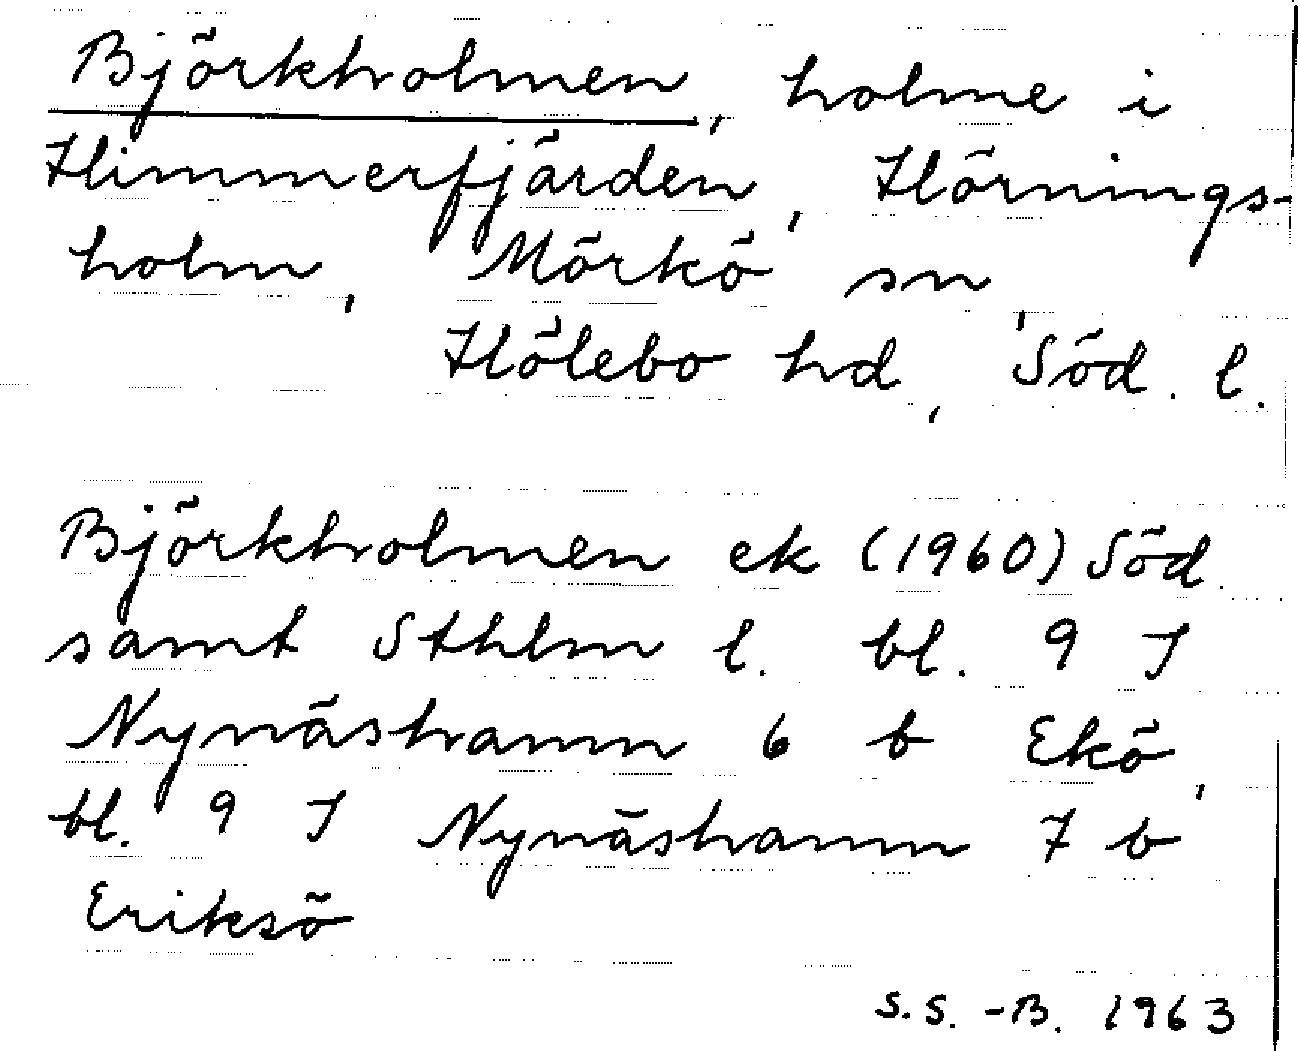 Björkholmen, holme i
Himmerfjärden, Hörnings-
holm, Mörkö sn,
Hölebo hd, Söd. l.
Björkholmen ek (1960) Söd.
samt Sthlm l. bl. 9 I
Nynäshamn 6 b Ekö,
bl. 9 I Nynäshamn 7 b
Eriksö
S.S.-B. 1963